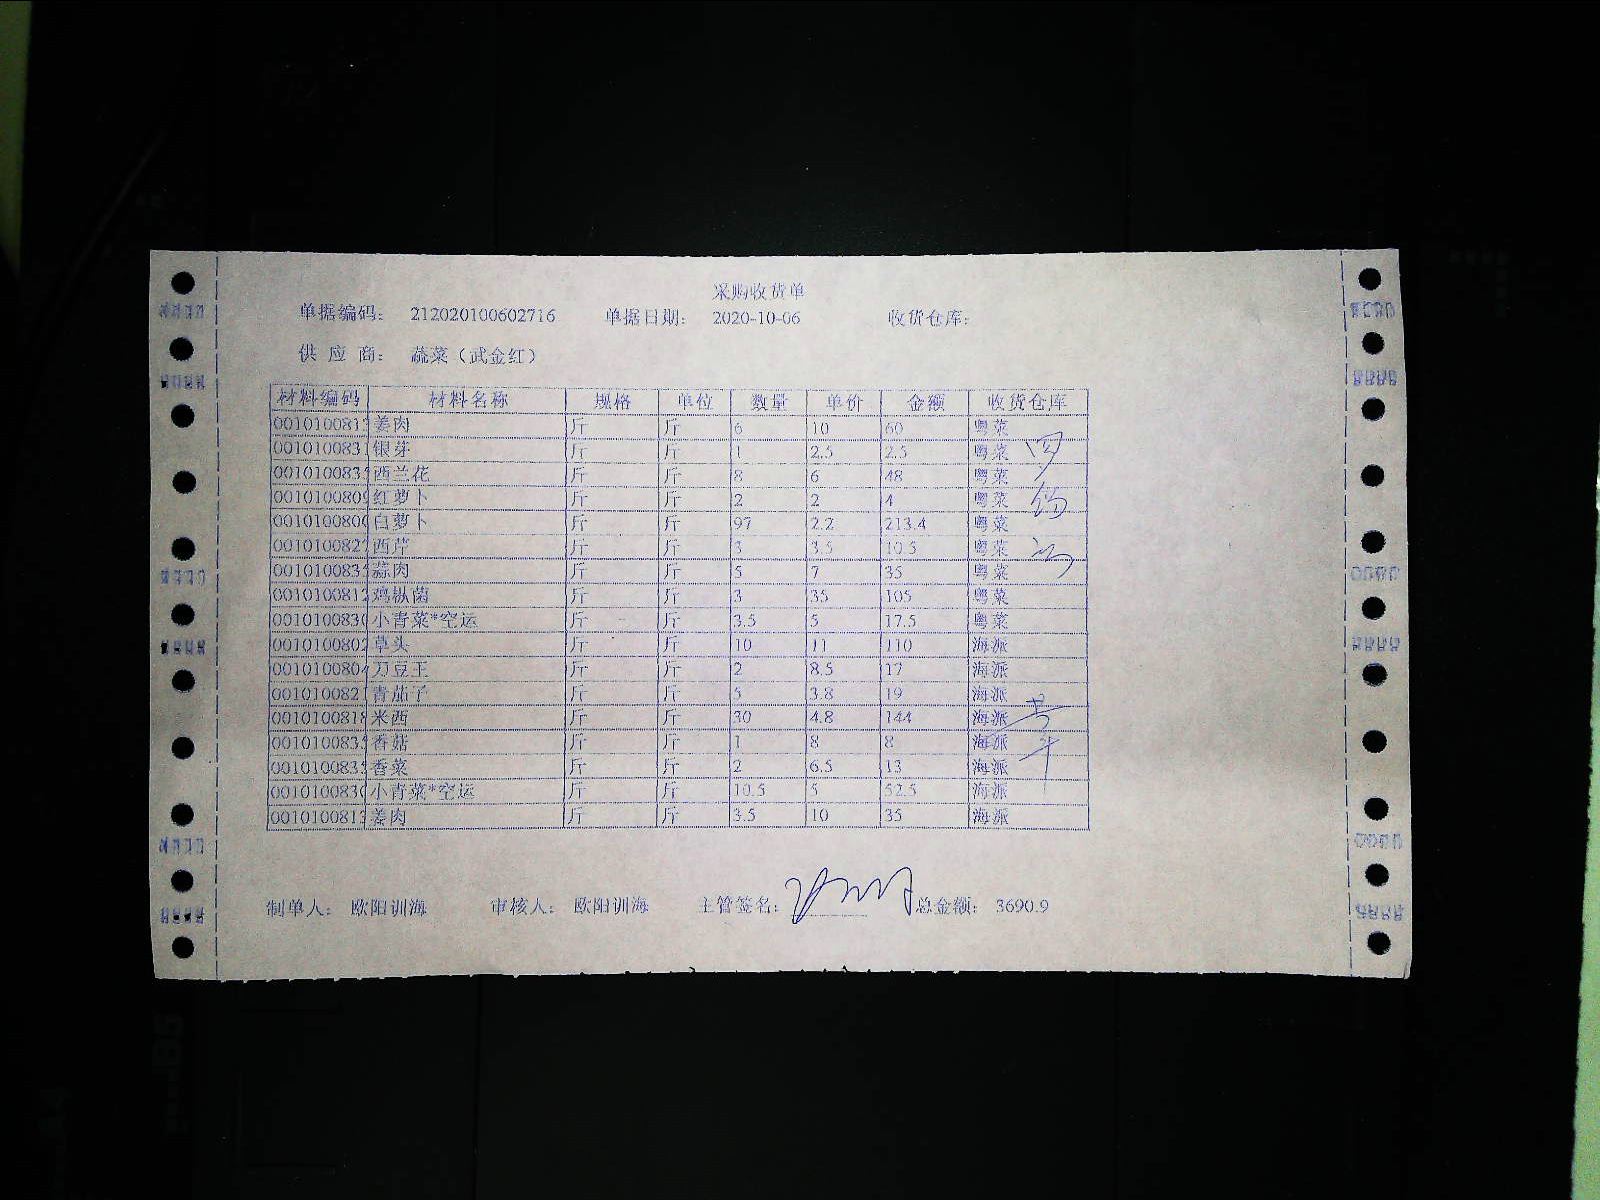 采购收货单
单据编码： 212020100602716 单据日期： 2020-10-06 收货仓库：
供 应 商： 蔬菜（武金红）
材料编码 材料名称 规格 单位 数量 单价 金额 收货仓库
001010081 姜肉 斤 斤 6 10 60 粤菜
001010083 银芽 斤 斤 1 2.5 2.5 粤菜
001010083 西兰花 斤 斤 8 6 48 粤菜
001010080 红萝卜 斤 斤 2 2 4 粤菜
001010080 白萝卜 斤 斤 97 2.2 213.4 粤菜
001010082 西芹 斤 斤 3 3.5 10.5 粤菜
001010083 蒜肉 斤 斤 5 7 35 粤菜
001010081 鸡枞菌 斤 斤 3 35 105 粤菜
001010083 小青菜*空运 斤 斤 3.5 5 17.5 粤菜
001010080 草头 斤 斤 10 11 110 海派
001010080 刀豆王 斤 斤 2 8.5 17 海派
001010082 青茄子 斤 斤 5 3.8 19 海派
001010081 米西 斤 斤 30 4.8 144 海派
001010083 香菇 斤 斤 1 8 8 海派
001010083 香菜 斤 斤 2 6.5 13 海派
001010083 小青菜*空运 斤 斤 10.5 5 52.5 海派
001010081 姜肉 斤 斤 3.5 10 35 海派
制单人： 欧阳训海 审核人： 欧阳训海 主管签名： 总金额： 3690.9